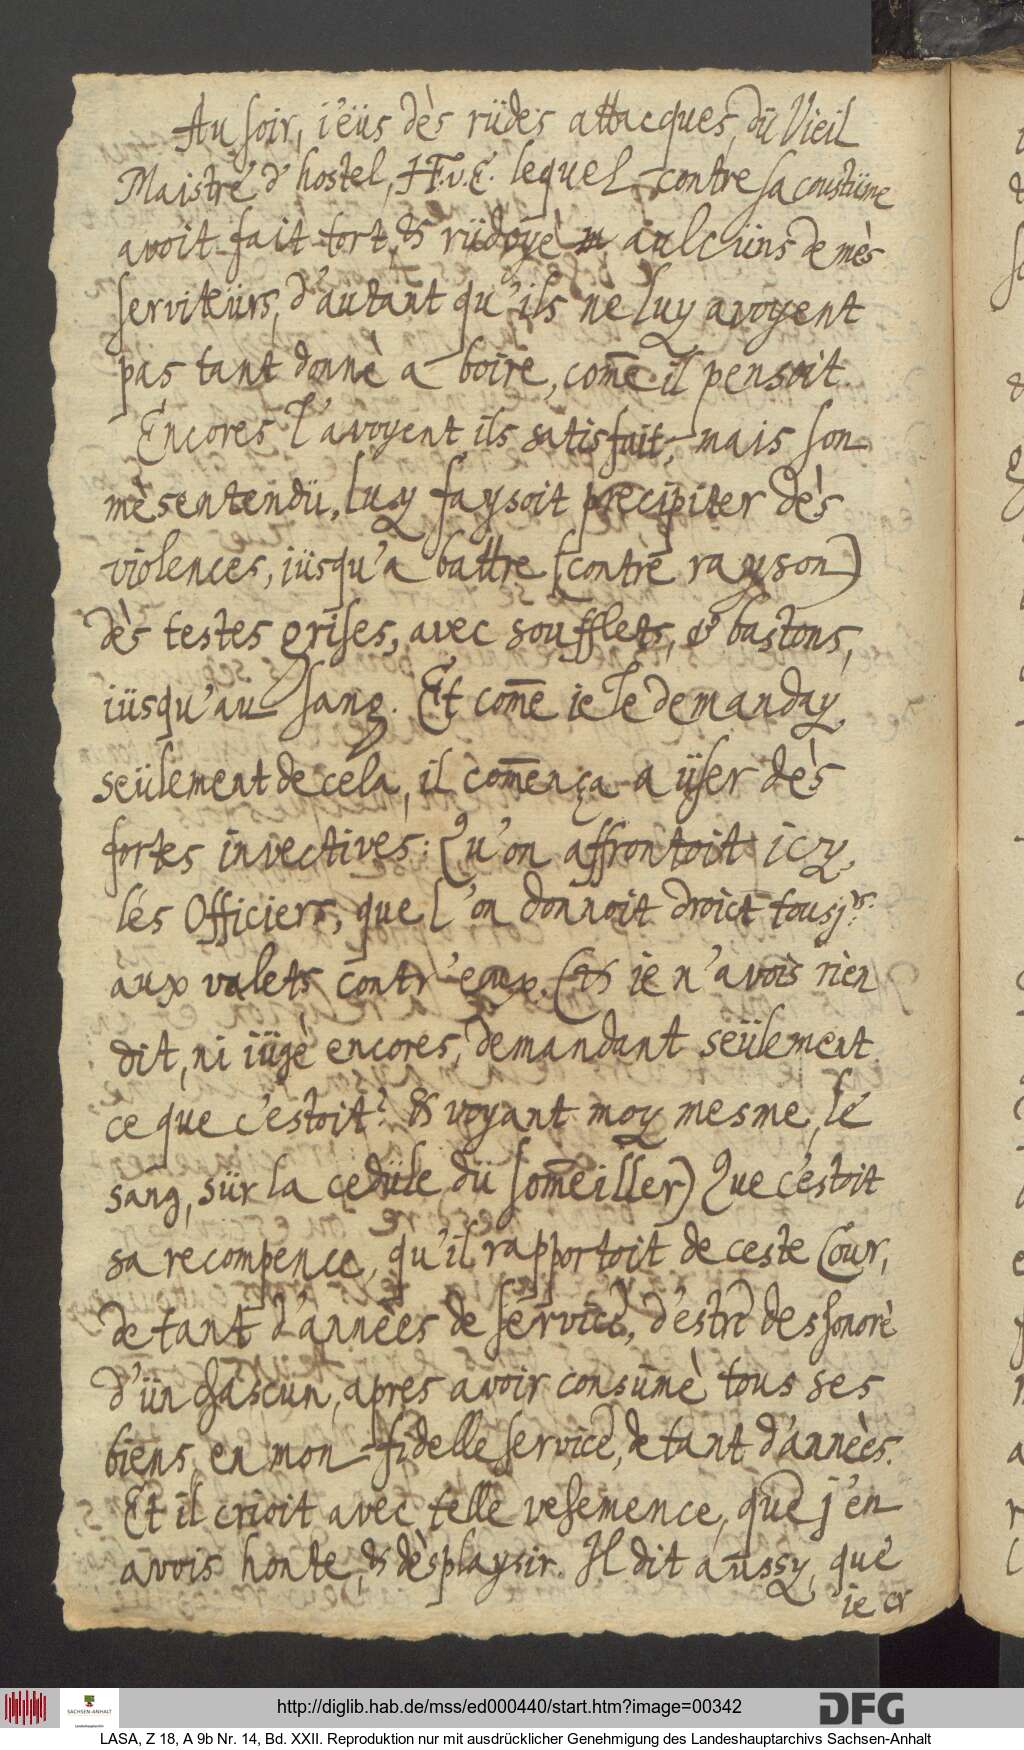 Au soir, i'eüs dès rüdes attacques, dü Vieil
Maistre d' hostel, H.F.v.E. lequel contre sa coustüme
avoit fait tort, & rüdoyè aulcüns de mès
serviteürs, d'autant qu'ils ne luy avoyent
pas tant donnè a boire, com̄e il pensoit.
Encores l'avoyent ils satisfait, mais son
mèsentendü, luy faysoit precipiter dès
violences, iüsqu'a battre (contre rayson)
dès testes grises, avec soufflets, & bastons,
iüsqu'au sang. Et com̄e ie le demanday
seülement de cela, il com̄ença a üser dès
fortes invectives: Qu'on affrontoit icy,
lés Officiers, que l'on donnoit droict tousjrs.
aux valets contr'eux. (& ie n'avois rien
dit, ni iügè encores, demandant seülement
ce que c'estoit? & voyant moy mesme, le
sang, sür la cedüle dü som̄eiller) Que c'estoit
sa recompence, qu'il rapportoit de ceste Cour,
de tant d'annèes de service, d'estre deshonorè
d'ün chascun, apres avoir consümè tous ses
biens, en mon fidelle service, de tant d'annèes.
Et il crioit avec telle vehemence, que j'en
avois honte, & dèsplaysir. Il dit aussy, que
ie cr
http://diglib.hab.de/mss/ed000440/start.htm?image=00342
DFG
SACHSEN-ANHALT
LASA, Z 18, A 9b Nr. 14, Bd. XXII. Reproduktion nur mit ausdrücklicher Genehmigung des Landeshauptarchivs Sachsen-Anhalt